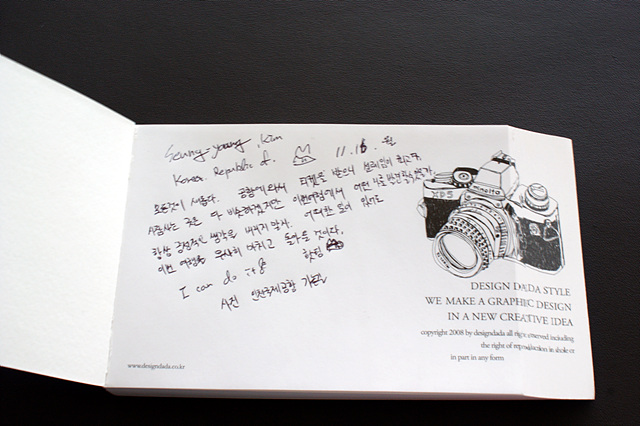 Seung-young, Kim
Korea. Republic of. 11. 16. 월
모든것이 새롭다. 공항에 와서 티켓을 받으니 설레임이 최고다.
사람사는 곳은 다 비슷하겠지만 이번여행에서 어떤
항상 긍정적인 생각을 버리지 말자. 어떠한 일이 있어도
이번 여행을 무사히 마치고 돌아올 것이다.
I can do it 핫팅
인천국제공항
XD5
minolta
DESIGN DADA STYLE
WE MAKE A GRAPHIC DESIGN
IN A NEW CREATIVE IDEA
copyright 2008 by designdada all right reserved including
the right of reproduction in whole or
in part in any form
www.designdada.co.kr